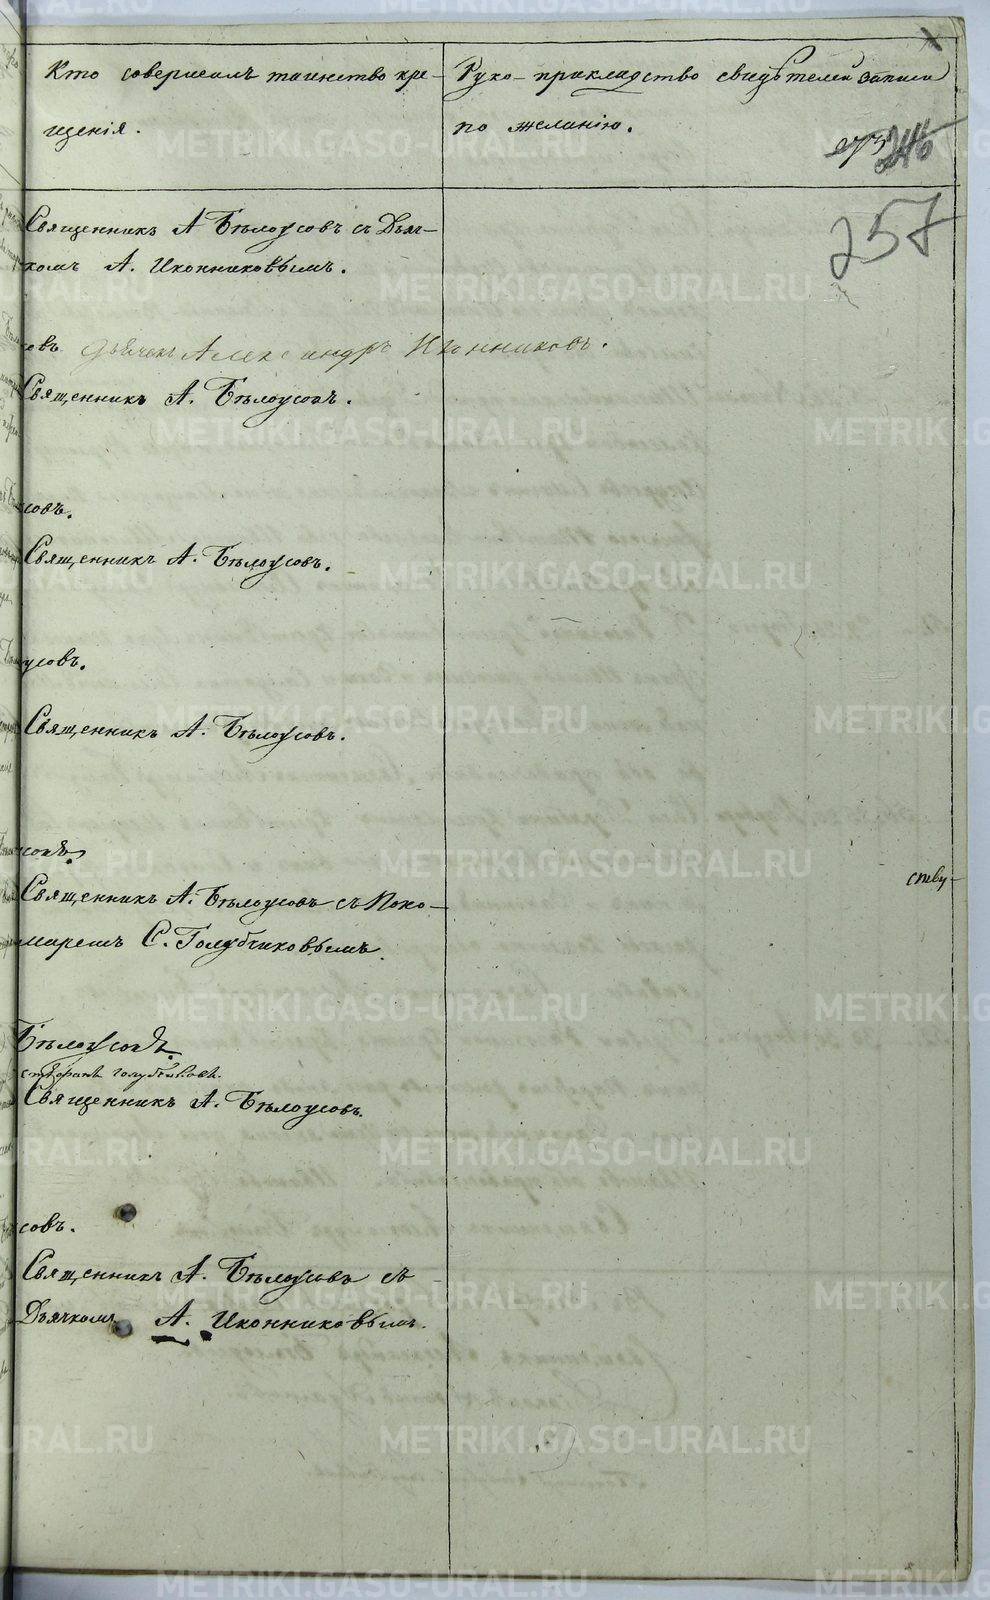 Кто совершалъ таинство кре-
щенія.
Руко-прикладство свидѣтелей записи
по желанію.
257
Священникъ А Бѣлоусовъ съ Дьяч-
комъ А. Иконниковымъ.
евъ дьячекъ Александръ Иконниковъ.
Священникъ А. Бѣлоусовъ.
совъ.
Священникъ А. Бѣлоусовъ.
усовъ.
Священникъ А. Бѣлоусовъ.
совъ.
ству-
Священникъ А. Бѣлоусовъ съ Поно-
маремъ С. Голубчиковымъ.
Бѣлоусовъ.
Стефанъ Голубчиковъ.
Священникъ А. Бѣлоусовъ.
совъ.
Священникъ А. Бѣлоусовъ съ
Дьячкомъ А. Иконниковымъ.
METRIKI.GASO-URAL.RU